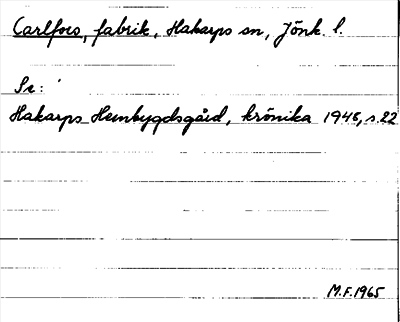 Carlfors, fabrik, Hakarps sn, Jönk. l.
Se:
Hakarps Hembygdsgård, krönika 1946, s.22
M.F.1965